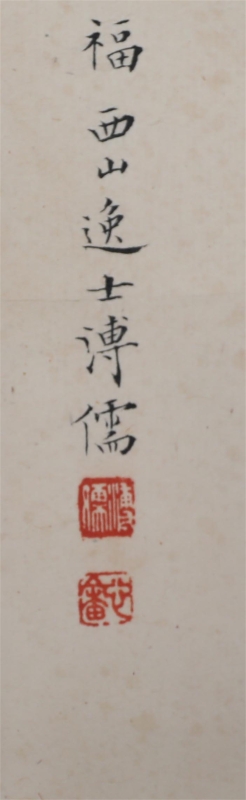 福 西山逸士溥儒
溥儒
心畬